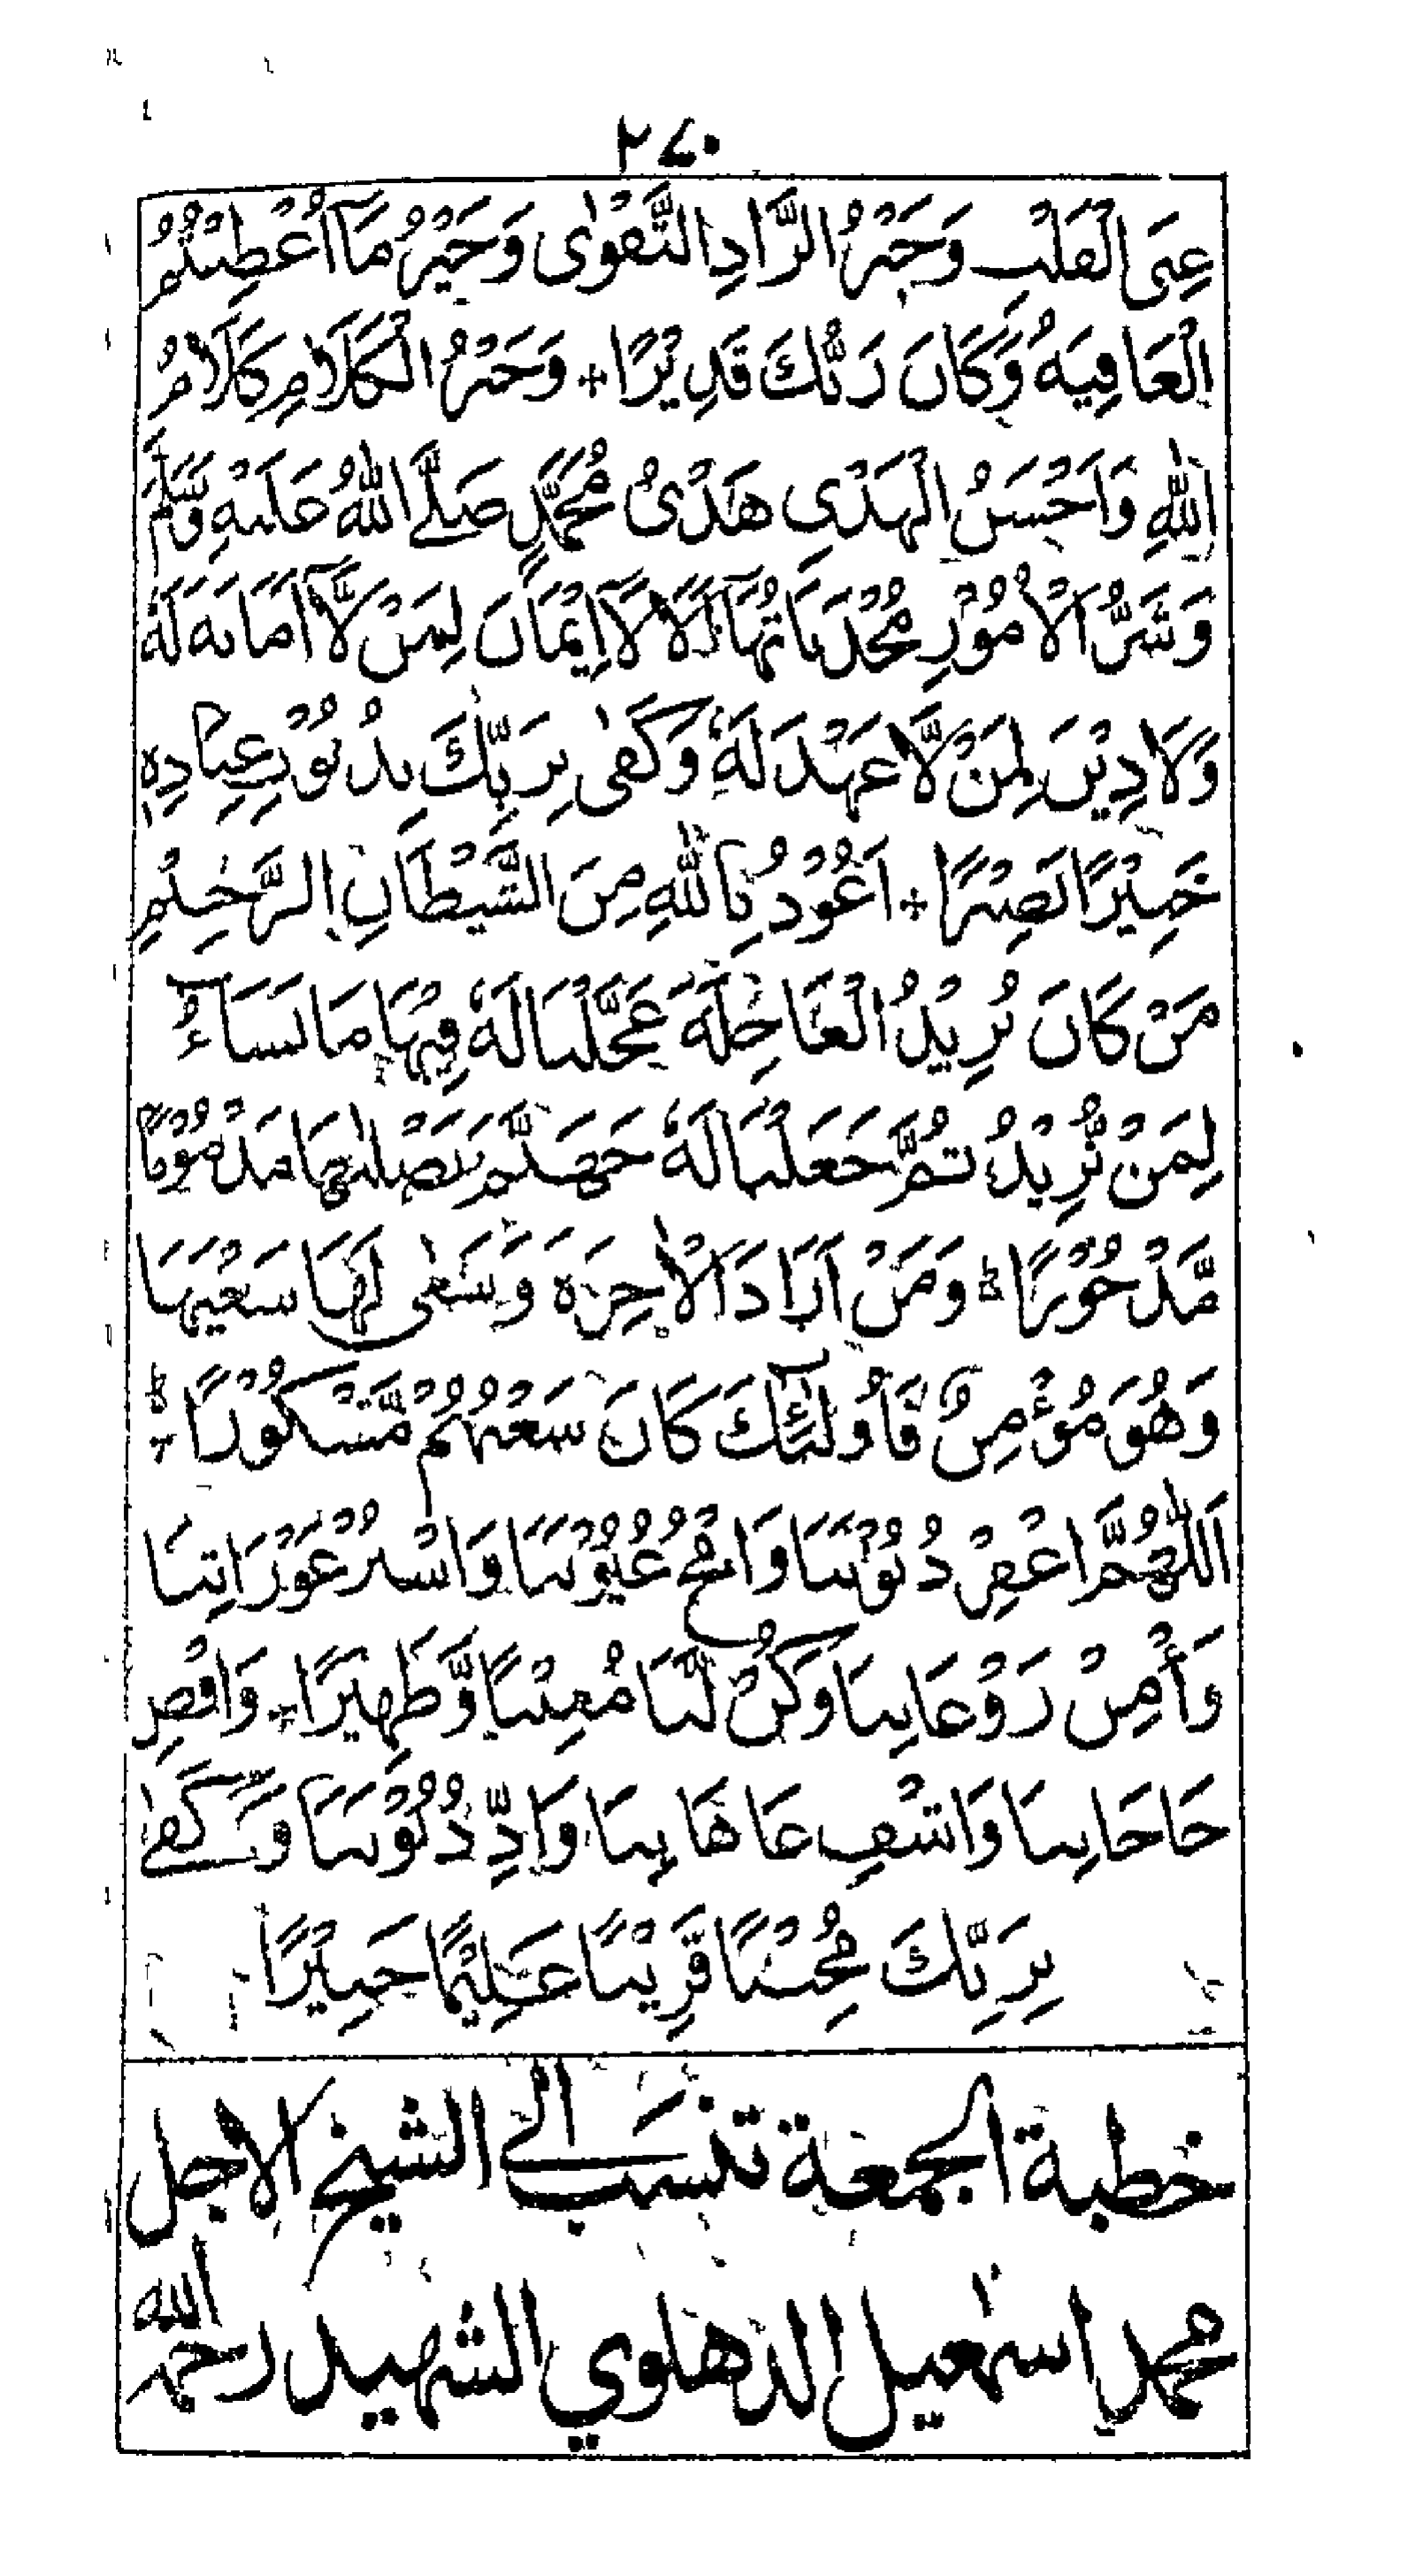 ٢٤٠
غِنَى الْقَلْبِ وَخَيْرُ الزَّادِ التَّقْوٰى وَخَيْرُ مَآ اُعْطِيْتُمُ
الْعَافِيَةُ وَكَانَ رَبُّكَ قَدِيْرًا + وَخَيْرُ الْكَلَامِ كَلَامُ
اللّٰهِ وَاَحْسَنُ الْهَدْىِ هَدْىُ مُحَمَّدٍ صَلَّے اللّٰهُ عَلَيْهِ وَسَلَّمَ
وَشَرُّ الْاُمُوْرِ مُحْدَثَاتُهَا اَلَا لَآ اِيْمَانَ لِمَنْ لَّآ اَمَانَةَ لَهٗ
وَلَا دِيْنَ لِمَنْ لَّا عَهْدَ لَهٗ وَكَفٰى بِرَبِّكَ بِذُنُوْبِ عِبَادِهٖ
خَبِيْرًا بَصِيْرًا + اَعُوْذُ بِاللّٰهِ مِنَ الشَّيْطَانِ الرَّجِيْمِ
مَنْ كَانَ يُرِيْدُ الْعَاجِلَةَ عَجَّلْنَا لَهٗ فِيْهَا مَا نَشَآءُ
لِمَنْ نُّرِيْدُ ثُمَّ جَعَلْنَا لَهٗ جَهَنَّمَ يَصْلٰىهَا مَذْمُوْمًا
مَّدْحُوْرًا ط وَمَنْ اَرَادَ الْاٰخِرَةَ وَسَعٰى لَهَا سَعْيَهَا
وَهُوَ مُؤْمِنٌ فَاُولٰٓئِكَ كَانَ سَعْيُهُمْ مَّشْكُوْرًا ط
اَللّٰهُمَّ اغْفِرْ ذُنُوْبَنَا وَامْحُ عُيُوْبَنَا وَاسْتُرْ عَوْرَاتِنَا
وَأَمِنْ رَوْعَاتِنَا وَكُنْ لَّنَا مُعِيْنًا وَّظَهِيْرًا + وَاقْضِ
حَاجَاتِنَا وَاشْفِ عَاهَاتِنَا وَاَدِّ دُيُوْنَنَا وَكَفٰے
بِرَبِّكَ مُجِيْبًا قَرِيْبًا عَلِيْمًا خَبِيْرًا
خطبة الجمعة تنسب الے الشيخ الاجل
محمد اسمٰعيل الدهلوي الشهيد رحمه الله